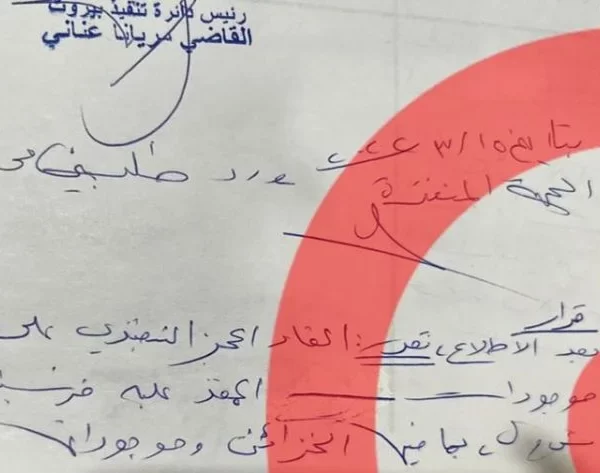 رئيس دائرة تنفيذ بيروت
القاضي مريانا عناني
بتاريخ ١٥/ ٣/ ٢٠٢٢ ورد طلب في
الجهة المنفذة
قرار
بعد الاطلاع، تقرر: القاء الحجز التنفيذي على
موجودات المنفذ عليه فرنسبنك
ش م ل، بما فيها الخزائن وموجوداتها